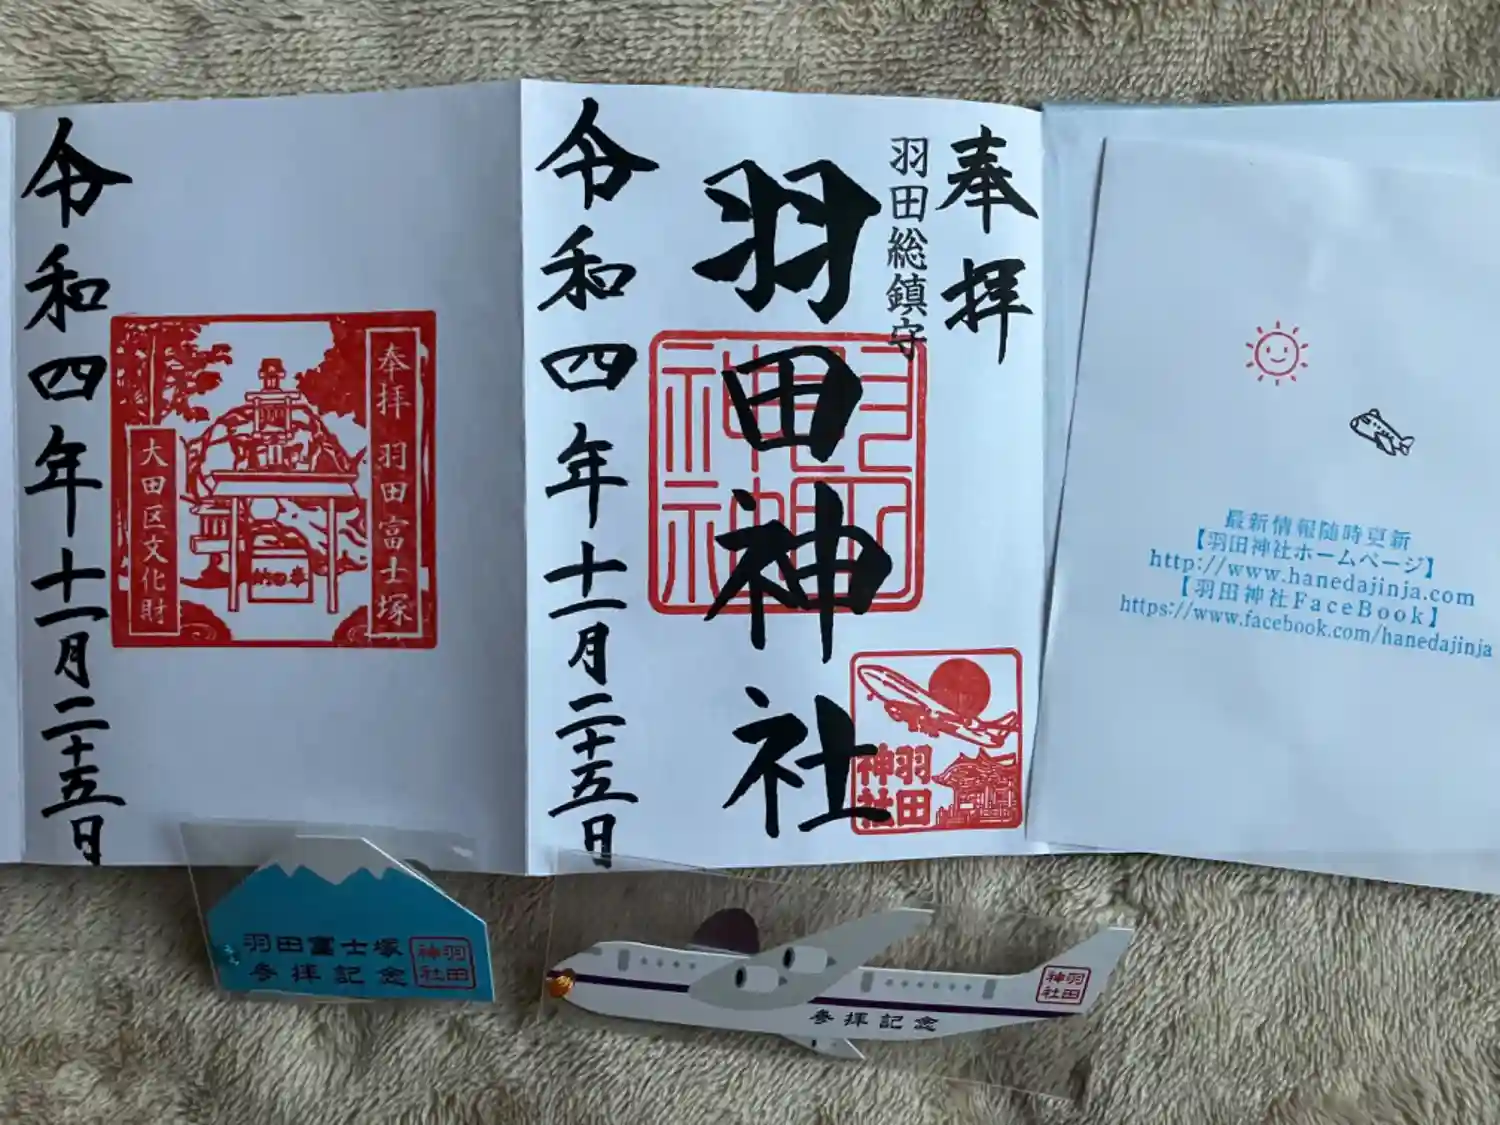 奉拝
羽田総鎮守
羽田神社
羽田神社
羽田
神社
令和四年十一月二十五日
奉拝 羽田富士塚
大田区文化財
令和四年十一月二十五日
最新情報随時更新
【羽田神社ホームページ】
http://www.hanedajinja.com
【羽田神社FaceBook】
https://www.facebook.com/hanedajinja
羽田富士塚
参拝記念
羽田
神社
参拝記念
羽田
神社